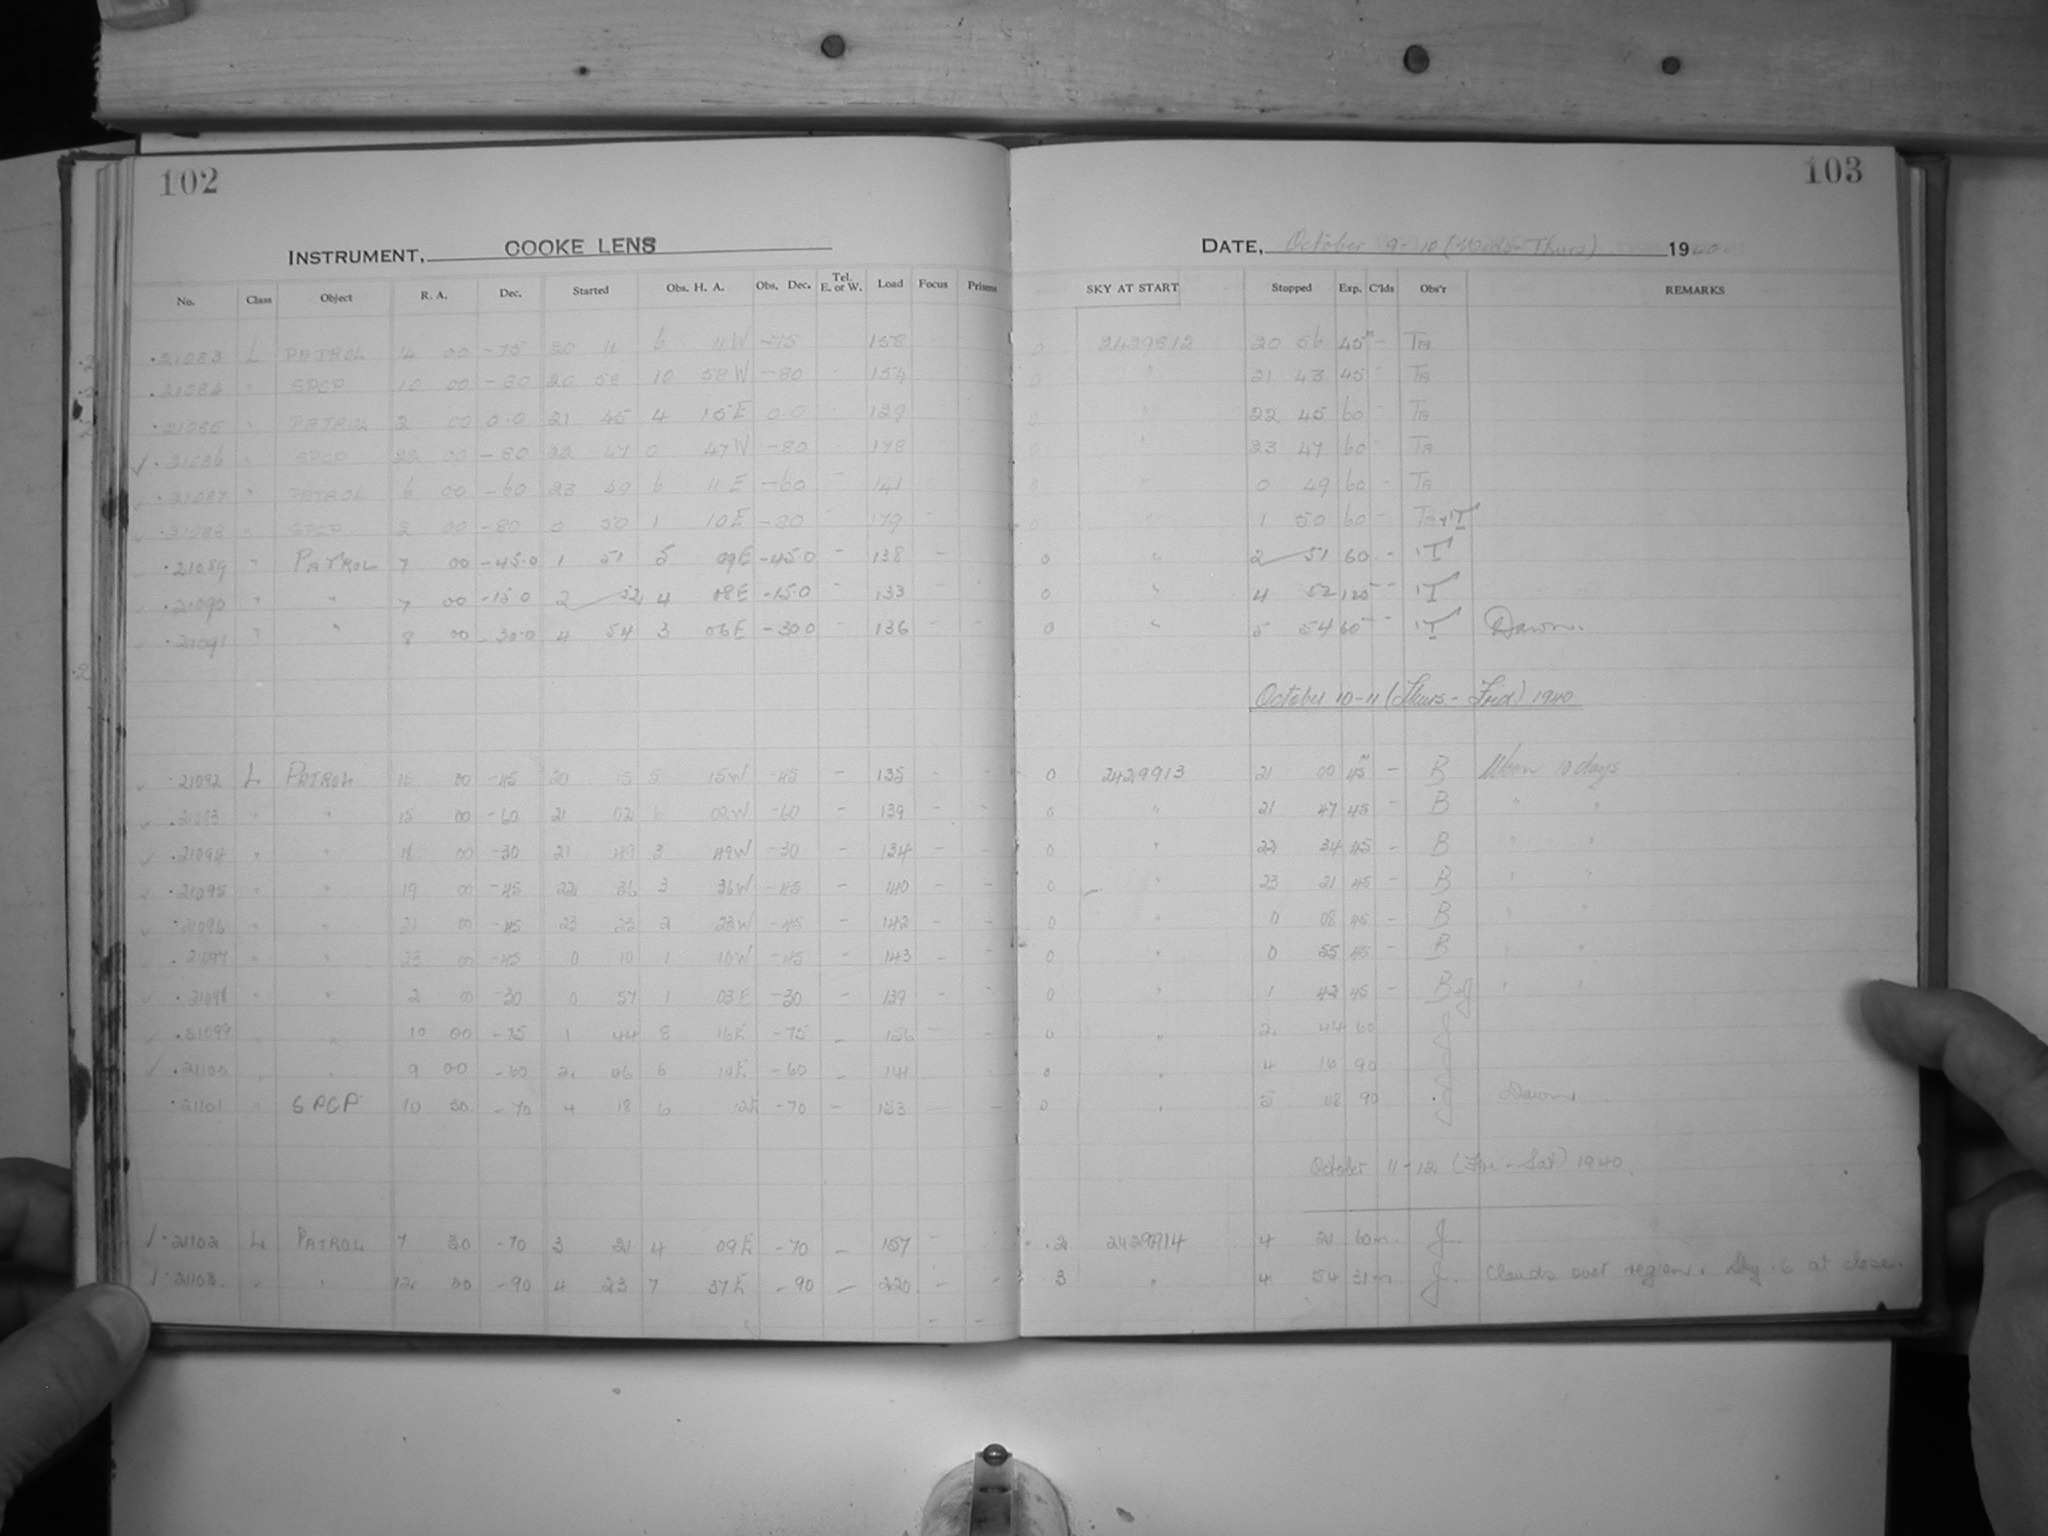 102
103
INSTRUMENT, COOKE LENS
DATE, October 9-10 (Weds-Thurs) 1940
No. Class Object R. A. Dec. Started Obs. H. A. Obs. Dec. Tel. E. or W. Load Focus Prisms SKY AT START Stopped Exp. C'lds Obs'r REMARKS
.21083 L PATROL 14 00 -75 20 11 6 11W -75 158 0 2429912 20 56 45m - TA
.21084 " SPCP 10 00 -80 20 58 10 58W -80 - 154 0 " 21 43 45 - TA
.21085 " PATROL 2 00 0.0 21 45 4 15E 0.0 - 129 0 " 22 45 60 - TA
✓ .21086 " SPCP 22 00 -80 22 47 0 47W -80 - 178 0 " 23 47 60 - TA
.21087 " PATROL 6 00 -60 23 49 6 11E -60 - 141 0 " 0 49 60 - TA
.21088 " SPCP 2 00 -80 0 50 1 10E -80 - 179 " 1 50 60 -
.21089 " PATROL 7 00 -45.0 1 51 5 09E -45.0 - 138 - 0 " 2 51 60 - T
.21090 " " 7 00 -15.0 2 52 4 08E -15.0 - 133 - - 0 " 4 52 120 - T
.21091 " " 8 00 -30.0 4 54 3 06E -30.0 - 136 - - 0 " 5 54 60 - T Dawn.
October 10-11 (Thurs-Frid) 1940
.21092 L PATROL 15 00 -45 20 15 5 15W -45 - 135 - - 0 2429913 21 00 45m - B Moon 10 days
.21093 " " 15 00 -60 21 02 6 02W -60 - 139 - - 0 " 21 47 45 - B " "
.21094 " " 18 00 -30 21 49 3 49W -30 - 134 - - 0 " 22 34 45 - B " "
.21095 " " 19 00 -45 22 36 3 36W -45 - 140 - - 0 " 23 21 45 - B " "
.21096 " " 21 00 -45 23 23 2 23W -45 - 142 - - 0 " 0 08 45 - B " "
.21097 " " 23 00 -45 0 10 1 10W -45 - 143 - - 0 " 0 55 45 - B " "
.21098 " " 2 00 -30 0 57 1 03E -30 - 139 - - 0 " 1 42 45 - B-J " "
.21099 " " 10 00 -75 1 44 8 16E -75 - 156 - - 0 " 2 44 60 J
✓ .21100 " " 9 00 -60 2 46 6 14E -60 - 141 - - 0 " 4 16 90 J
.21101 " SPCP 10 30 -70 4 18 6 12E -70 - 153 - - 0 " 5 48 90 J Dawn
October 11-12 (Fri-Sat) 1940.
✓ .21102 L PATROL 7 30 -70 3 21 4 09E -70 - 157 - - .2 2429914 4 21 60m J.
✓ .21103 " " 12 00 -90 4 23 7 37E -90 - 220 - - 3 " 4 54 31m J. Clouds over region. Sky .6 at close.